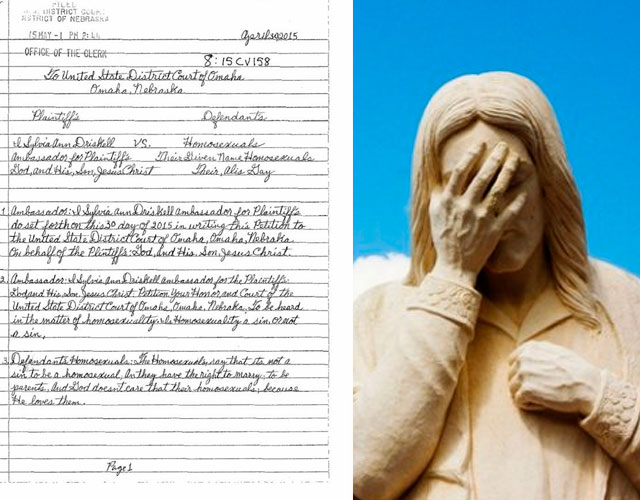 FILED
U.S. DISTRICT COURT
DISTRICT OF NEBRASKA
15 MAY -1 PM 2:
OFFICE OF THE CLERK
April 30, 2015
8:15CV158
To United State District Court of Omaha
Omaha, Nebraska
Plaintiffs Defendants
I Sylvia Ann Driskell VS. Homosexuals
Ambassador for Plaintiffs Their Given Name Homosexuals
God, and His, Son, Jesus Christ Their, Alis Gay
1. Ambassador: I Sylvia Ann Driskell Ambassador for Plaintiffs
do set forth on this 30 day of 2015 in writing this Petition to
the United State District Court of Omaha, Omaha, Nebraska.
On behalf of the Plintiffs God, and His, Son, Jesus Christ.
2. Ambassador: I Sylvia Ann Driskell ambassador for the Plaintiffs
God and His, Son, Jesus Christ. Petition Your Honor, and Court of the
United State District Court of Omaha, Omaha, Nebraska. To be heard
in the matter of homosexuality. Is Homosexuality a sin, or not
a sin.
3. Defendants Homosexuals: The Homosexuals say that its not a
sin to be a homosexual, An they have the right to marry, to be
parents, And God doesnt care that their homosexuals; because
He loves them.
Page 1